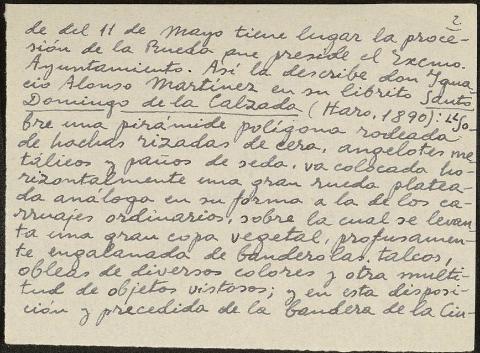 2
de del 11 de Mayo tiene lugar la proce-
sión de la Rueda que preside el Excmo.
Ayuntamiento. Así la describe don Igna-
cio Alonso Martínez en su librito Santo
Domingo de la Calzada (Haro, 1890): "So-
bre una pirámide polígona rodeada
de hachas rizadas de cera, angelotes me-
tálicos y paños de seda, va colocada ho-
rizontalmente una gran rueda platea-
da análoga en su forma a la de los ca-
rruajes ordinarios, sobre la cual se levan-
ta una gran copa vegetal, profusamen-
te engalanada de banderolas, talcos,
obleas de diversos colores y otra multi-
tud de objetos vistosos; y en esta disposi-
ción y precedida de la bandera de la Ciu-